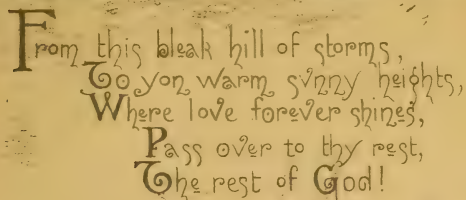 From this bleak hill of storms,
To yon warm sunny heights,
Where love forever shines,
Pass over to thy rest,
The rest of God!